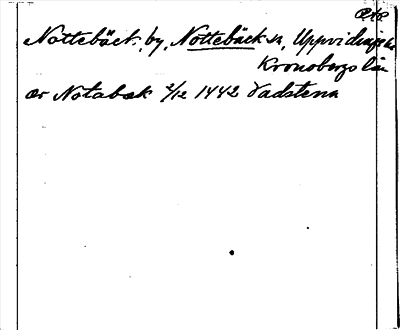 Nottebäck, by, Nottebäck sn, Uppvidinge hd
Kronobergs län
av Notabæk 2/12 1442 Vadstena